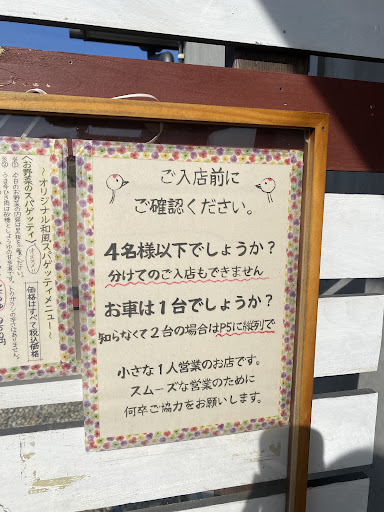 ご入店前に
ご確認ください。
4名様以下でしょうか?
分けてのご入店もできません
お車は1台でしょうか?
知らなくて2台の場合はP5に縦列で
小さな1人営業のお店です。
スムーズな営業のために
何卒ご協力をお願いします。
~オリジナル和風スパゲッティメニュー~
〈お野菜のスパゲッティ〉
価格はすべて税込価格